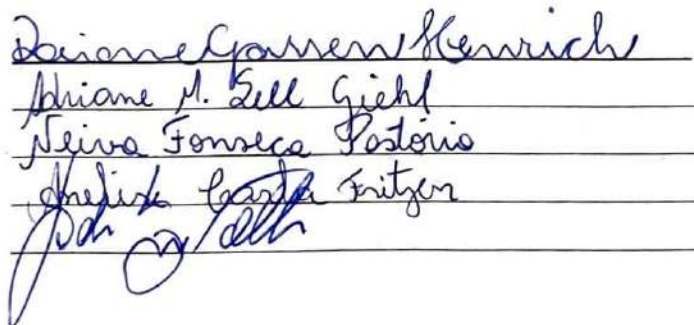 Daiane Gassen Henrich
Adriane M. Sell Giehl
Neiva Fonseca Pastório
Fritzen